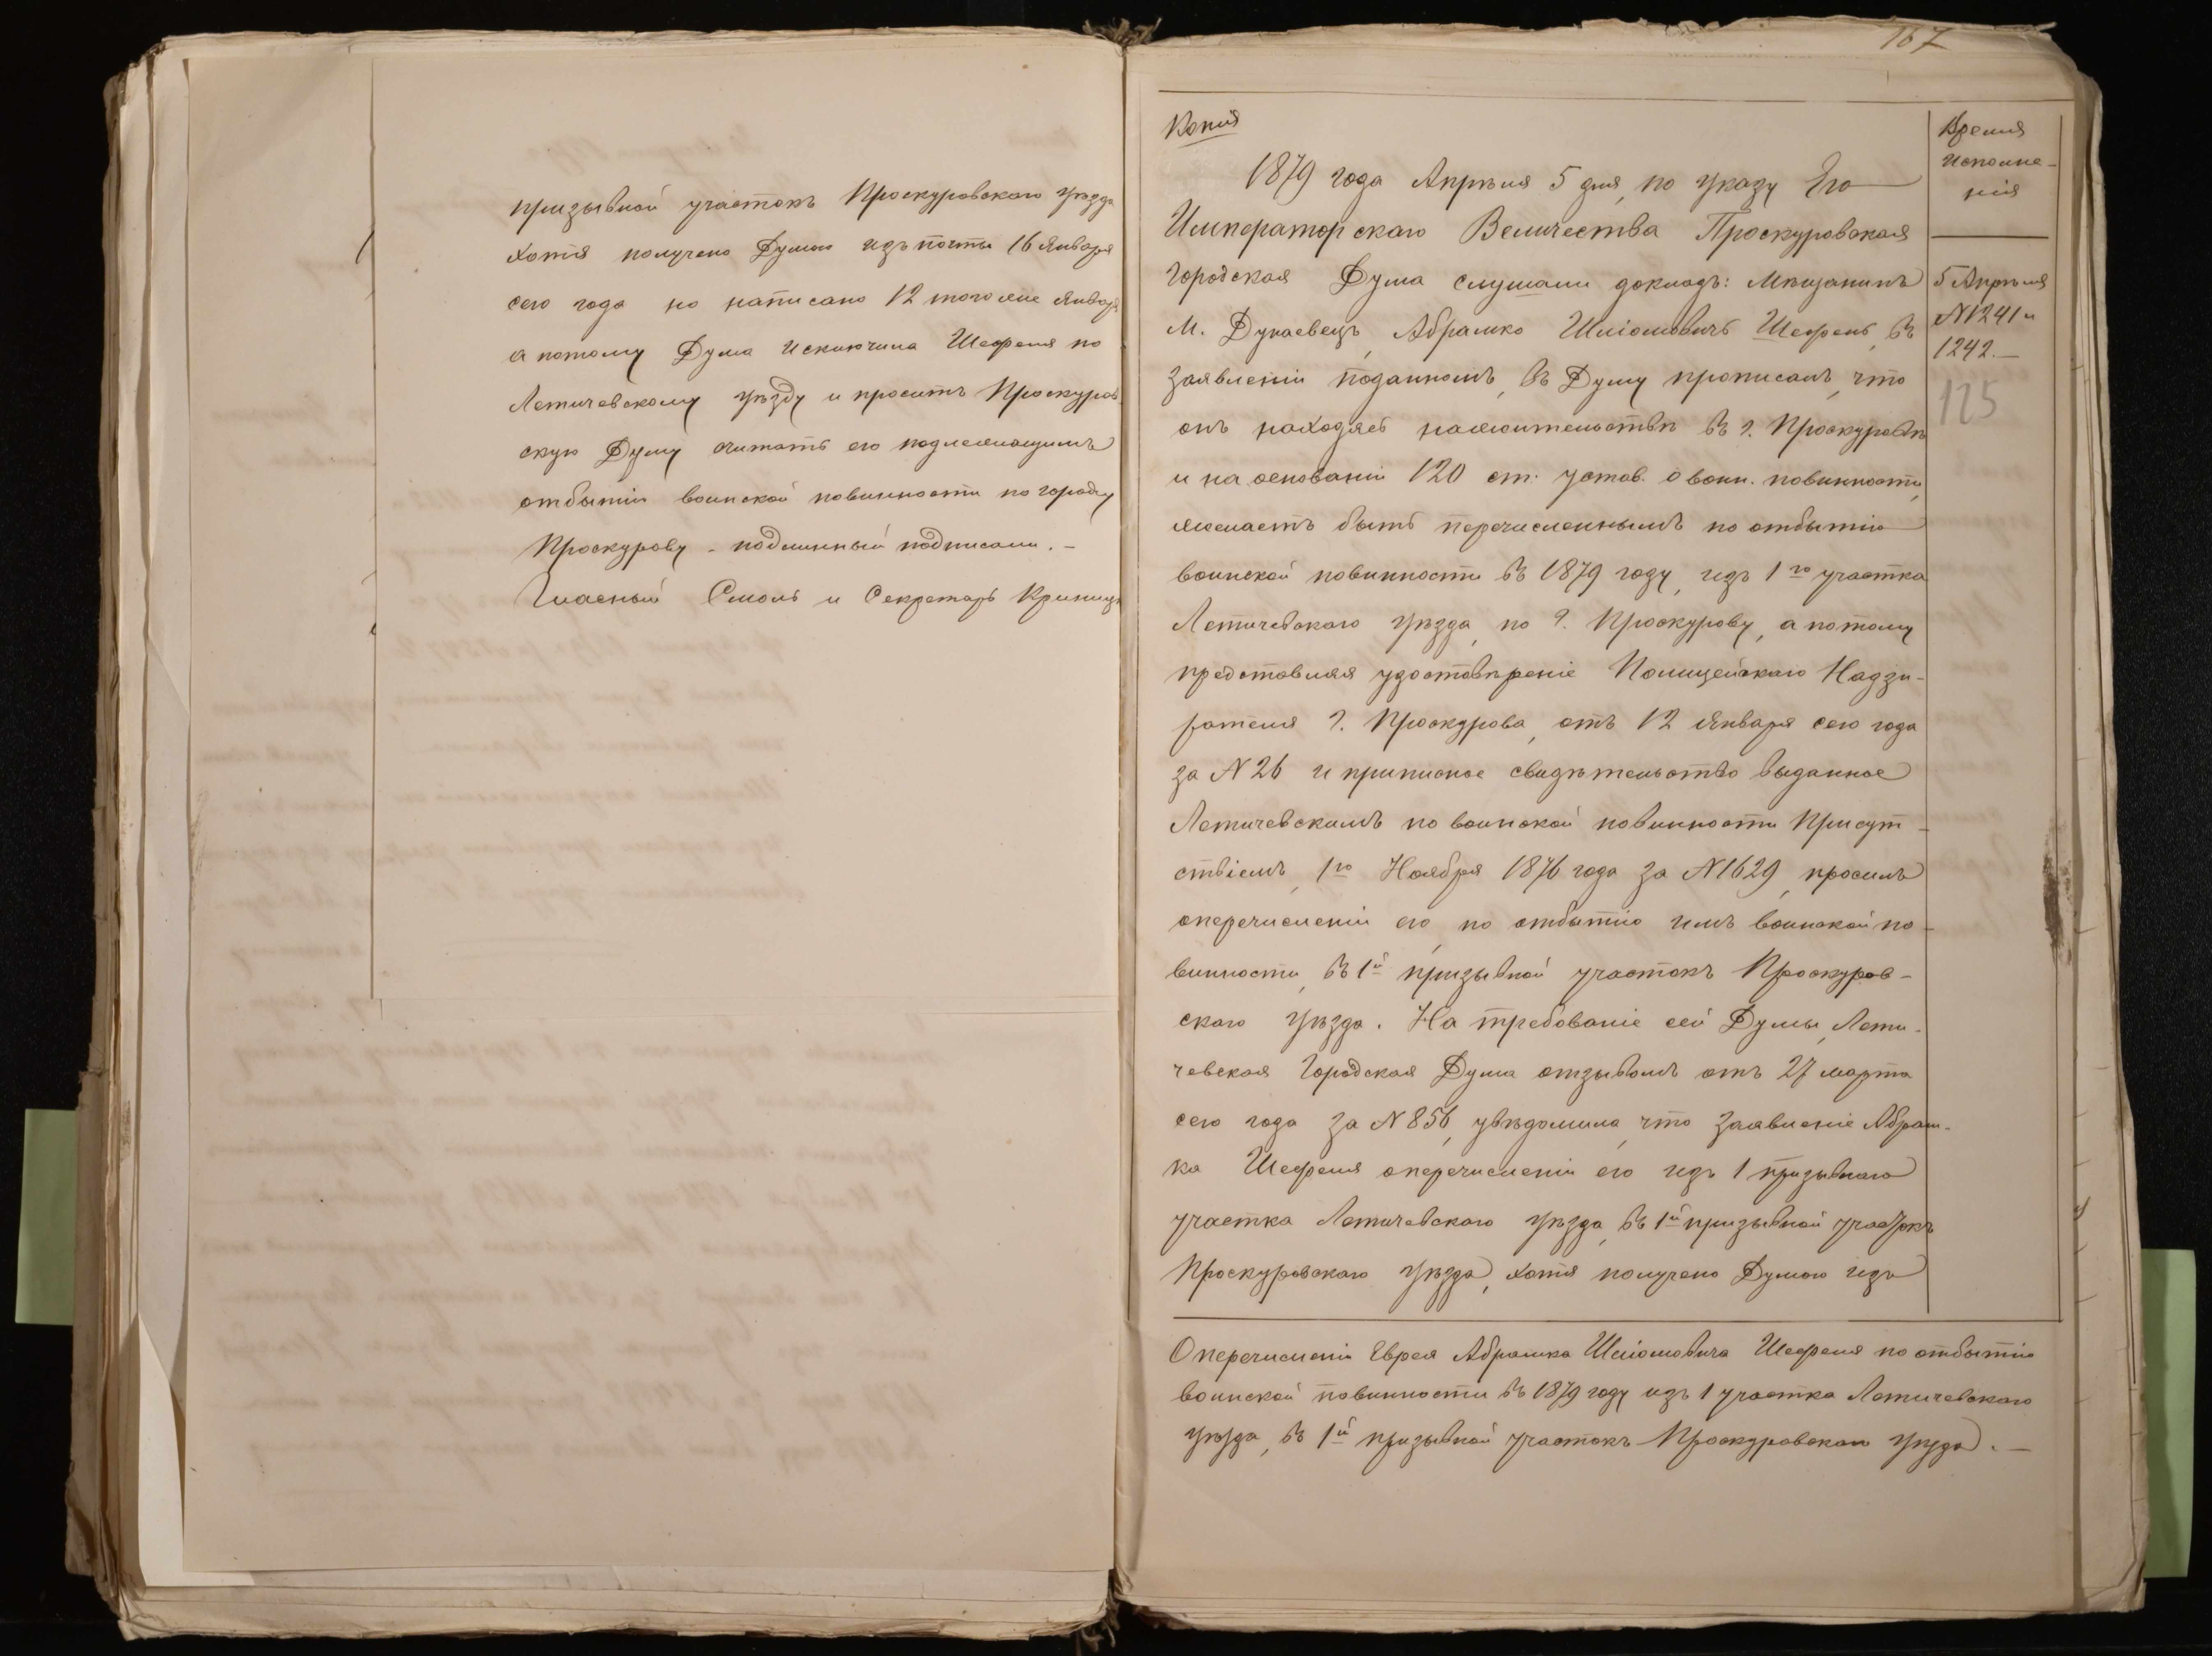 призывной участокъ Проскуровскаго уѣзда
хотя получено Думою изъ почты 16 Января
сего года но написано 12 того же Января
а потому Дума исключила Шефтеля по
Летичевскому уѣзду и проситъ Проскуров
скую Думу считать его подлежащимъ
отбытію воинской повинности по городу
Проскурову - подлинный подписали. -
Гласный Смоль и Секретарь
167
Копія
1879 года Апрѣля 5 дня, по указу Его
Императорскаго Величества Проскуровская
Городская Дума слушали докладъ: Мѣщанинъ
М. Дунаевецъ, Абрамко Шліомовичъ Шефтель, въ
заявленіи поданномъ, въ Думу прописалъ, что
онъ находясь на жительствѣ въ г. Проскуровѣ
и на основаніи 120 ст: устав. о воин. повинности,
желаетъ быть перечисленнымъ по отбытію
воинской повинности въ 1879 году, изъ 1го участка
Летичевскаго уѣзда, по г. Проскурову, а потому
представляя удостовѣреніе Полицейскаго Надзи-
рателя г. Проскурова, отъ 12 Января сего года
за N 26 и приписное свидѣтельство выданное
Летичевскимъ по воинской повинности Присут-
ствіемъ, 1го Ноября 1876 года за N 1629, просилъ
о перечисленіи его, по отбытію имъ воинской по-
винности, въ 1й призывной участокъ Проскуров-
скаго уѣзда. На требованіе сей Думы, Лети-
чевская Городская Дума отзывомъ отъ 27 марта
сего года за N 856, увѣдомила, что заявленіе Абрам-
ка Шефтеля о перечисленіи его изъ 1 призывнаго
участка Летичевскаго уѣзда, въ 1й призывной участокъ
Проскуровскаго уѣзда, хотя получено Думою изъ
Время
исполне-
нія
5 Апрѣля
N 1241 и
1242. -
125
О перечисленіи Еврея Абрамка Шліомовича Шефтеля по отбытію
воинской повинности въ 1879 году изъ 1 участка Летичевскаго
уѣзда, въ 1й призывной участокъ Проскуровскаго уѣзда. -